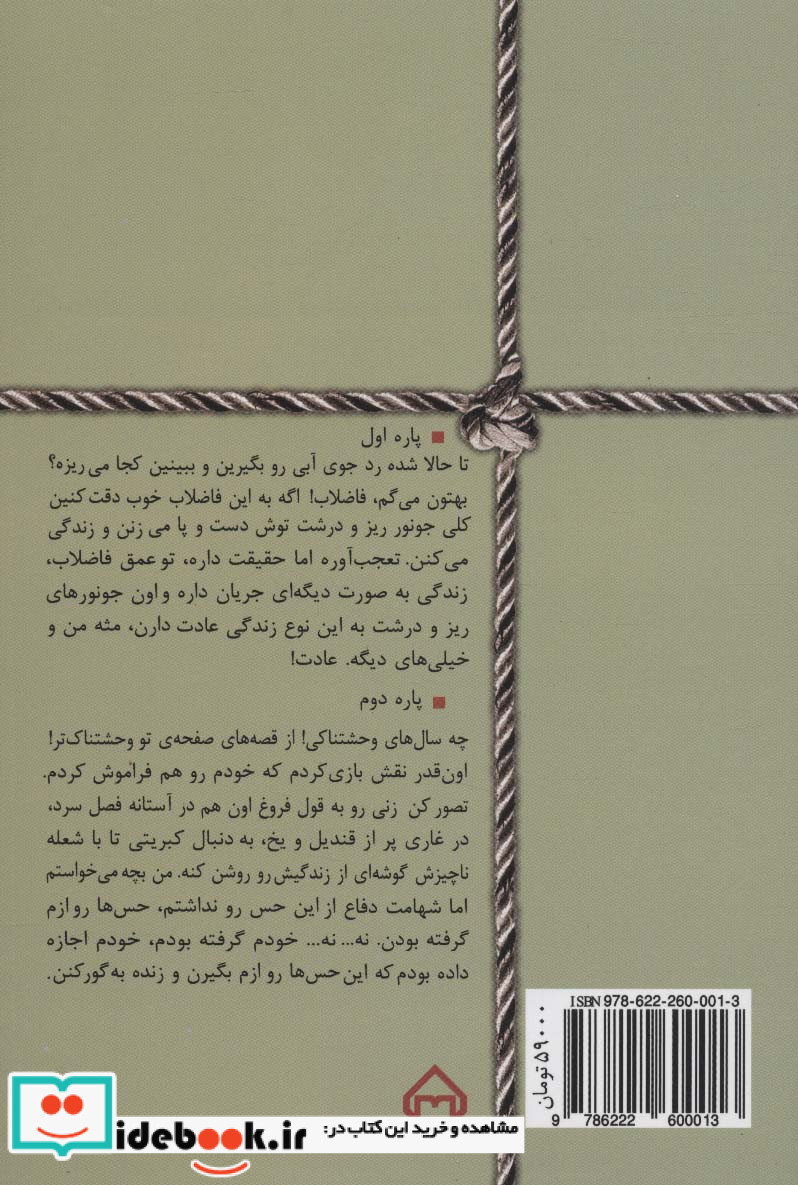 پاره اول
تا حالا شده رد جوی آبی رو بگیرین و ببینین کجا می‌ریزه؟
بهتون می‌گم، فاضلاب! اگه به این فاضلاب خوب دقت کنین
کلی جونور ریز و درشت توش دست و پا می‌زنن و زندگی
می‌کنن. تعجب‌آوره اما حقیقت داره، تو عمق فاضلاب،
زندگی به صورت دیگه‌ای جریان داره و اون جونورهای
ریز و درشت به این نوع زندگی عادت دارن، مثه من و
خیلی‌های دیگه. عادت!
پاره دوم
چه سال‌های وحشتناکی! از قصه‌های صفحه‌ی تو وحشتناک‌تر!
اون‌قدر نقش بازی کردم که خودم رو هم فراموش کردم.
تصور کن زنی رو به قول فروغ اون هم در آستانه فصل سرد،
در غاری پر از قندیل و یخ، به دنبال کبریتی تا با شعله
ناچیزش گوشه‌ای از زندگیش رو روشن کنه. من بچه می‌خواستم
اما شهامت دفاع از این حس رو نداشتم، حس‌ها رو ازم
گرفته بودن. نه... نه... خودم گرفته بودم، خودم اجازه
داده بودم که این حس‌ها رو ازم بگیرن و زنده به گور کنن.
ISBN 978-622-260-001-3
۵۹۰۰۰ تومان
9 786222 600013
مشاهده و خرید این کتاب در:
idebook.ir